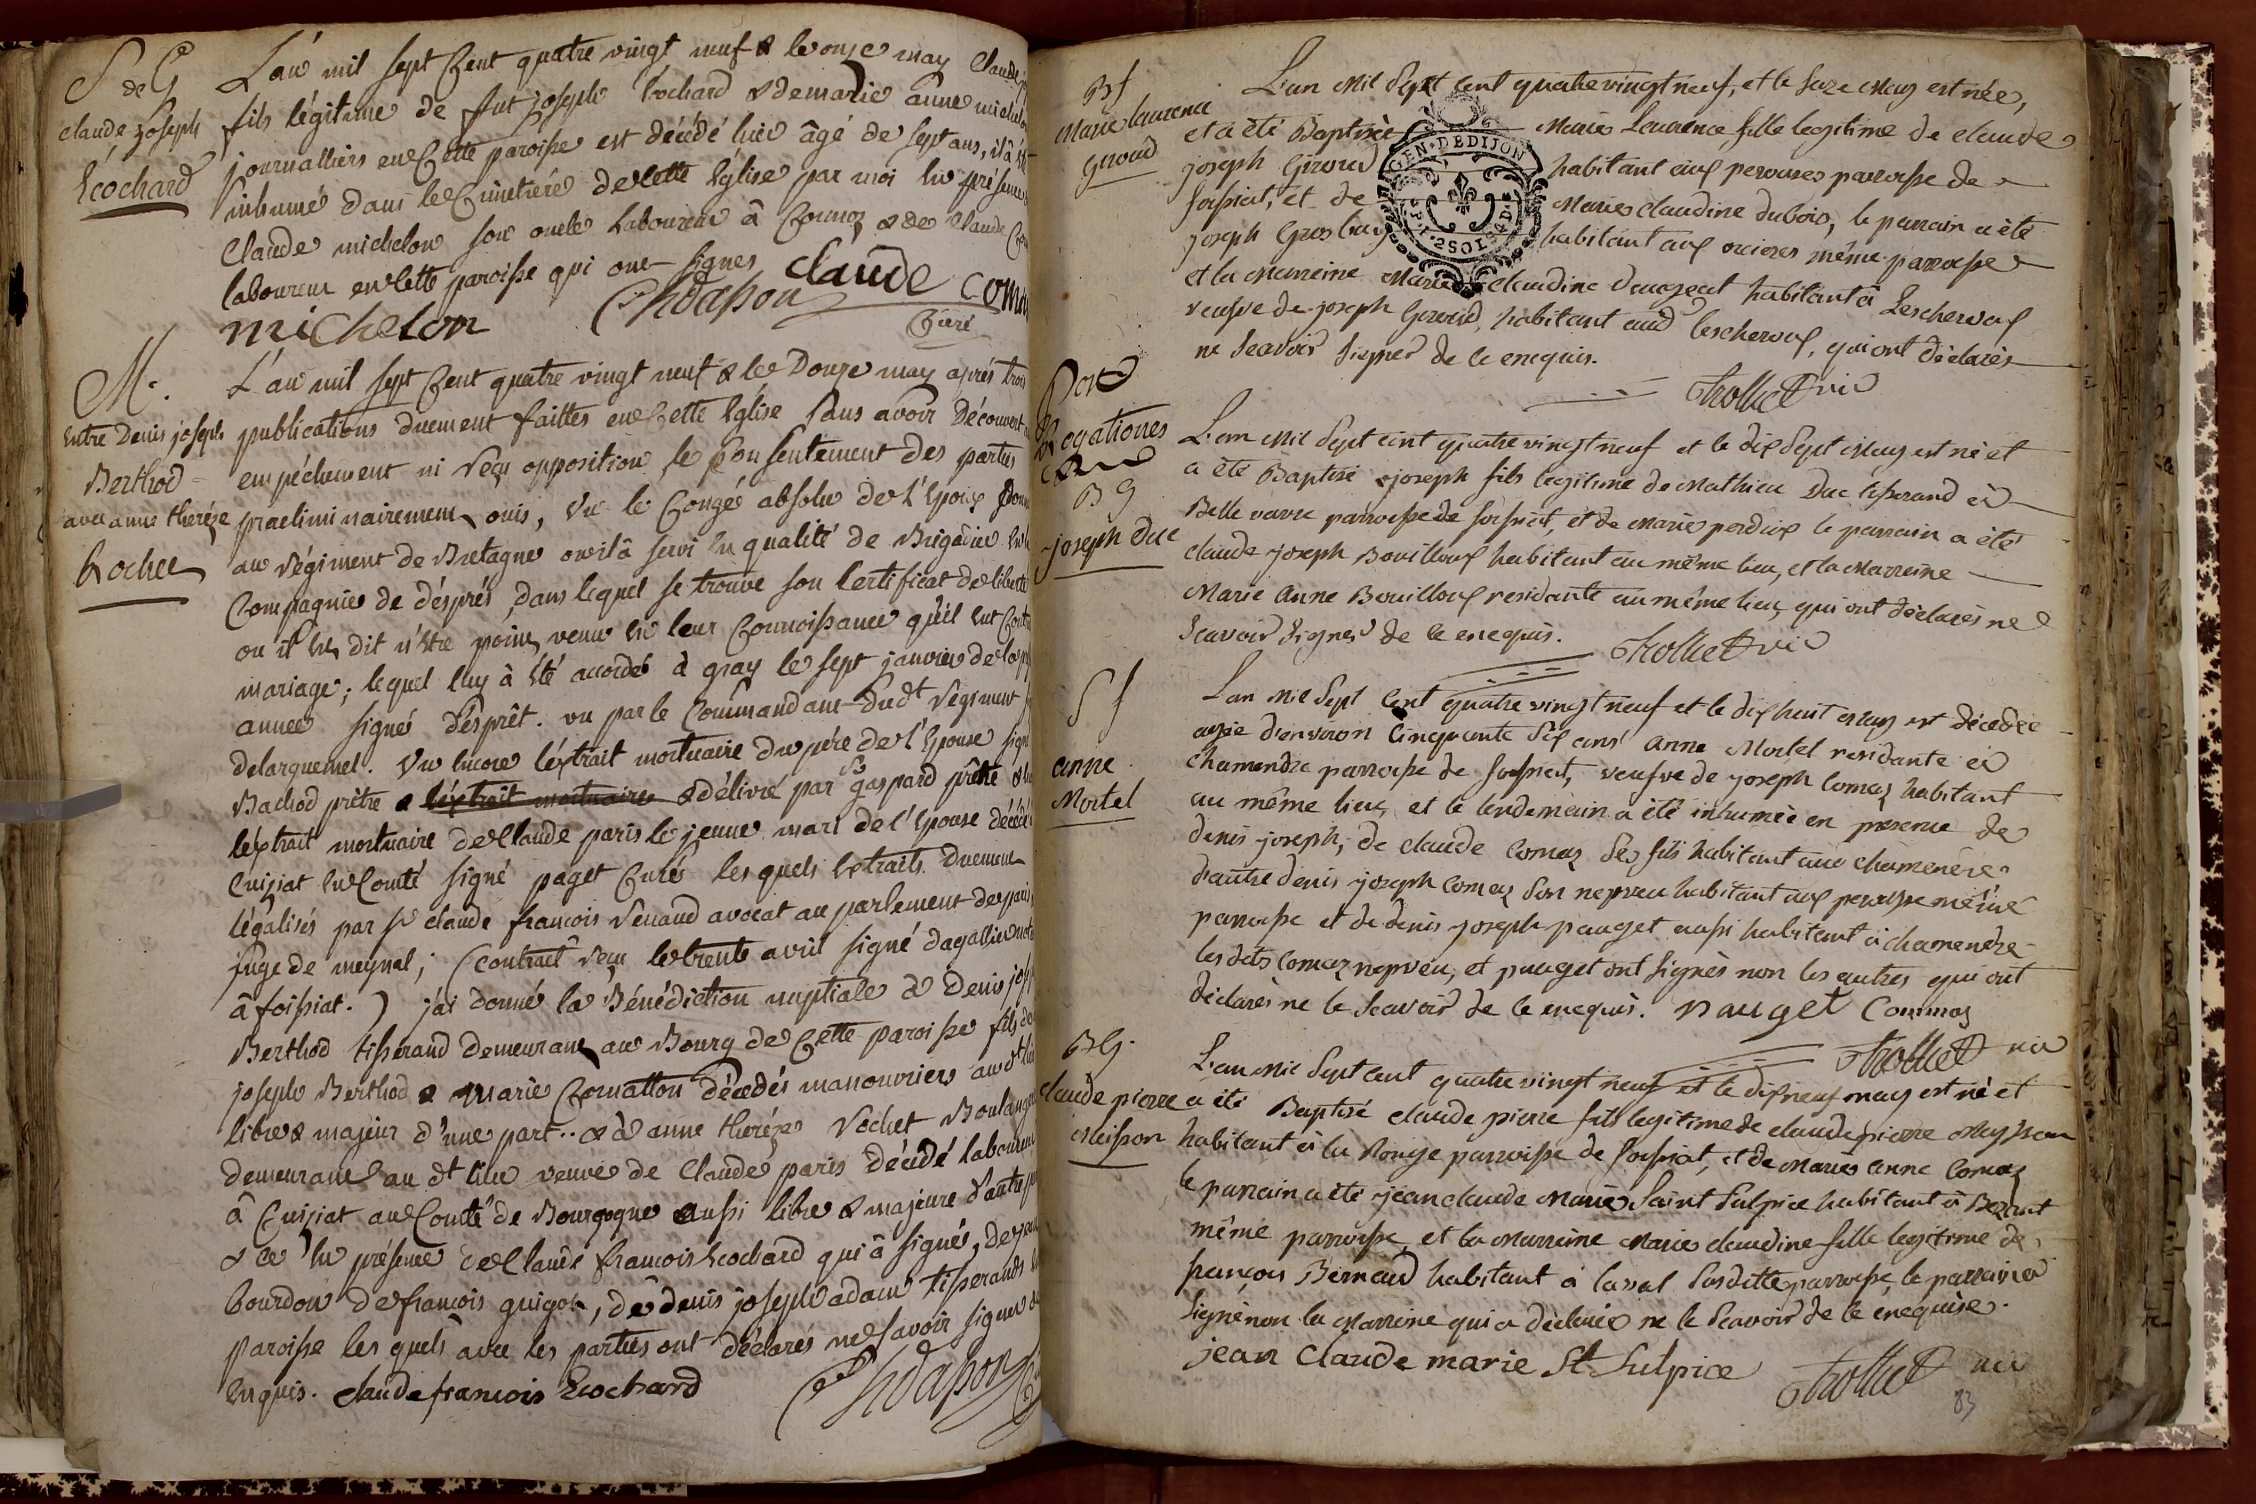 S de G
claude joseph
Ecochard
L'an mil sept Cent quatre vingt neuf & le onze may Claude
fils légitime de fut joseph Ecochard & de marie anne michelon
journalliers en Cette paroisse est décédé hier âgé de sept ans, il à été
inhumé dans le Cimetière de cette Eglise par moi En présence
Claude michelon son oncle laboureur â Cormoz & de Claude
laboureur en cette paroisse qui ont signés claude
michelon Chdapon Curé
M.
entre Denis joseph
Berthod
avec anne thereze
Rochet
L'an mil sept Cent quatre vingt neuf & le Douze may après trois
publications duement faittes en Cette Eglise sans avoir Découvert
empéchement ni reçu opposition, le Consentement des parties
praeliminairement ouis, vu le Congé absolu de l'Epoux
au régiment de Bretagne ou il â servi En qualité de Brigadier
Compagnie de désprés, dans lequel se trouve son Certificat de liberté
ou il Est dit n'etre point venu En leur Connoissance qu'il eut
mariage; lequel luy à été accordé à gray le sept janvier de la
annee signé désprêt. vu par le Commandant Dudt régiment
delarguemel. vu Encore l'éxtrait mortuaire du père de l'Epouse signé
Bachod prêtre & l'éxtrait mortuaire & délivré par Sr gaspard prêtre
l'éxtrait mortuaire de Claude paris le jeune mari de l'Epouse décédé
Cuiziat En Comté signé paget Curé les quels Extraits Duement
légalisés par sr claude francois renaud avocat au parlement de
juge de meynal; (Contract reçu le trente avril signé dagallier
â foissiat.) j'ai donné la Bénédiction nuptiale à Denis
Berthod tisserand Demeurant au Bourg de Cette paroisse fils de
joseph Berthod & marie Cornatton décédés manouvriers audt
libre & majeur d'une part.. & à anne thereze rochet
demeurant au dt lieu veuve de Claude paris décédé laboureur
à Cuiziat au Comté de Bourgogne aussi libre & majeure d'autre
& ce En présence de Claude francois Ecochard qui â signés, de
Bourdon de francois guigot, de denis joseph adam tisserands
paroisse les quels avec les parties ont déclarés ne savoir signer
enquis. claude francois Ecochard Chdapon
Bf
Marie laurence
Giroud
L'an Mil Sept cent quatre vingt neuf, et le Seize May est née,
et a été Baptisée Marie Laurence fille legitime de claude
joseph Giroud habitant aux perouses parroisse de
foissiat, et de Marie claudine dubois, le parrain a été
joseph Grosbuy habitant aux même parroisse
et la Marreine Marie claudine habitant à Lescheroux
veufve de joseph Giroud, habitant aud Lescheroux, qui ont déclarés
ne scavoir signer de ce enequis.
Chollet vic
GEN. DE DIJON
Rogationes
B G
joseph Duc
L'an Mil Sept cent quatre vingt neuf et le dix Sept May est né et
a été Baptisé joseph fils legitime de Mathieu Duc tisserand à
Belle vavre parroisse de foissiat, et de Marie perdrix le parrain a été
claude joseph Bouilloux habitant au même lieu, et la Marreine
Marie Anne Bouilloux residante au même lieu, qui ont déclarés ne
scavoir signer de ce enequis. Chollet vic
S f
anne
Mortel
L'an Mil Sept cent quatre vingt neuf et le dix huit May est décédée
agée d'environ Cinquante Six ans anne Mortel residante à
chamandre parroisse de foissiat, veufve de joseph Comas habitant
au même lieu, et le lendemain a été inhumée en presence de
denis joseph, de claude Comas Ses fils habitant aux chamenére
d'autre denis joseph Comas Son nepveu habitant aux même
parroisse et de denis joseph pauget aussi habitant à chamendre
les dits Comas nepveu, et pauget ont signés non les autres qui ont
déclarés ne le scavoir de ce enequis. pauget Commas
Chollet vic
BG.
claude pierre
Meisson
L'an Mil Sept cent quatre vingt neuf et le dix neuf may est né et
a été Baptisé claude pierre fils legitime de claude pierre
habitant à la Ronge parroisse de foissiat, et de Marie anne Comas
le parrain a été jean claude Marie Saint Sulpice habitant à
même parroisse et la Marreine Marie claudine fille legitime de
françois Bernard habitant à lasval susditte parroisse, le parrain a
signé non la Marreine qui a déclarée ne le scavoir de ce enequise.
jean claude marie St Sulpice Chollet vic
83